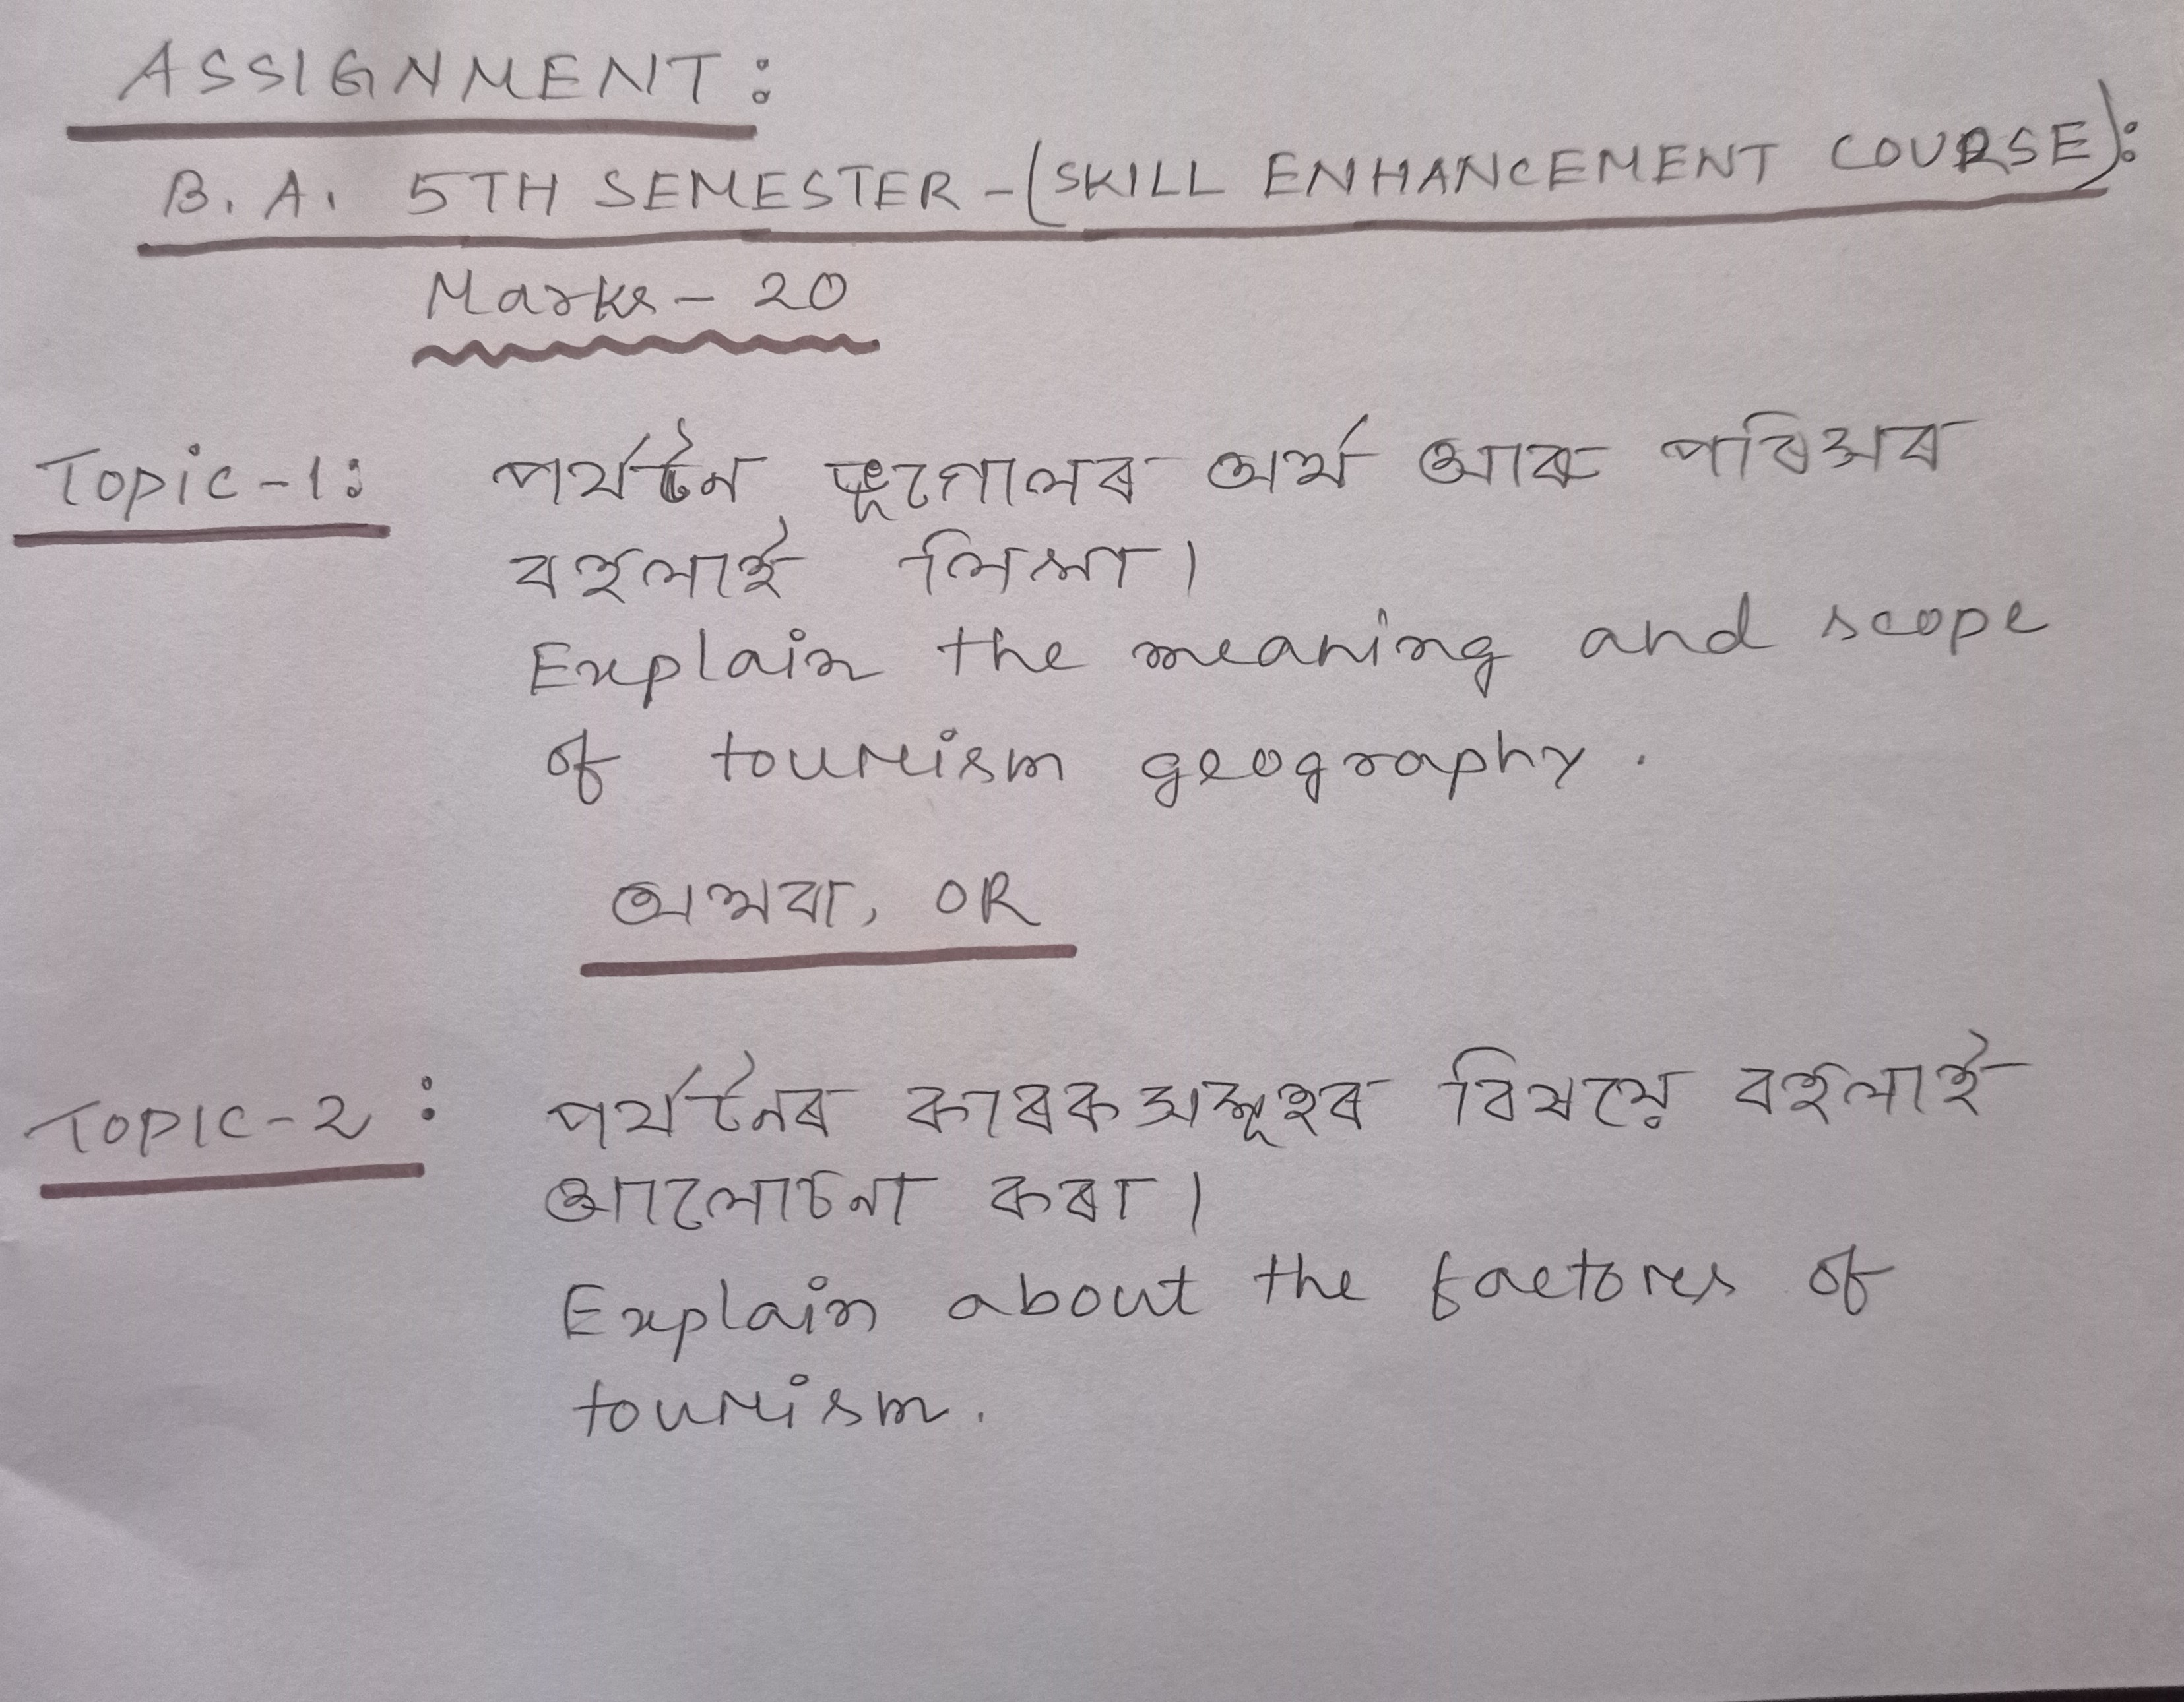 ASSIGNMENT:
B. A. 5TH SEMESTER - (SKILL ENHANCEMENT COURSE):
Marks - 20
Topic-1: পৰ্যটন ভূগোলৰ অৰ্থ আৰু পৰিসৰ
বহলাই লিখা।
Explain the meaning and scope
of tourism geography.
অথবা, OR
TOPIC-2: পৰ্যটনৰ কাৰকসমূহৰ বিষয়ে বহলাই
আলোচনা কৰা।
Explain about the factores of
tourism.